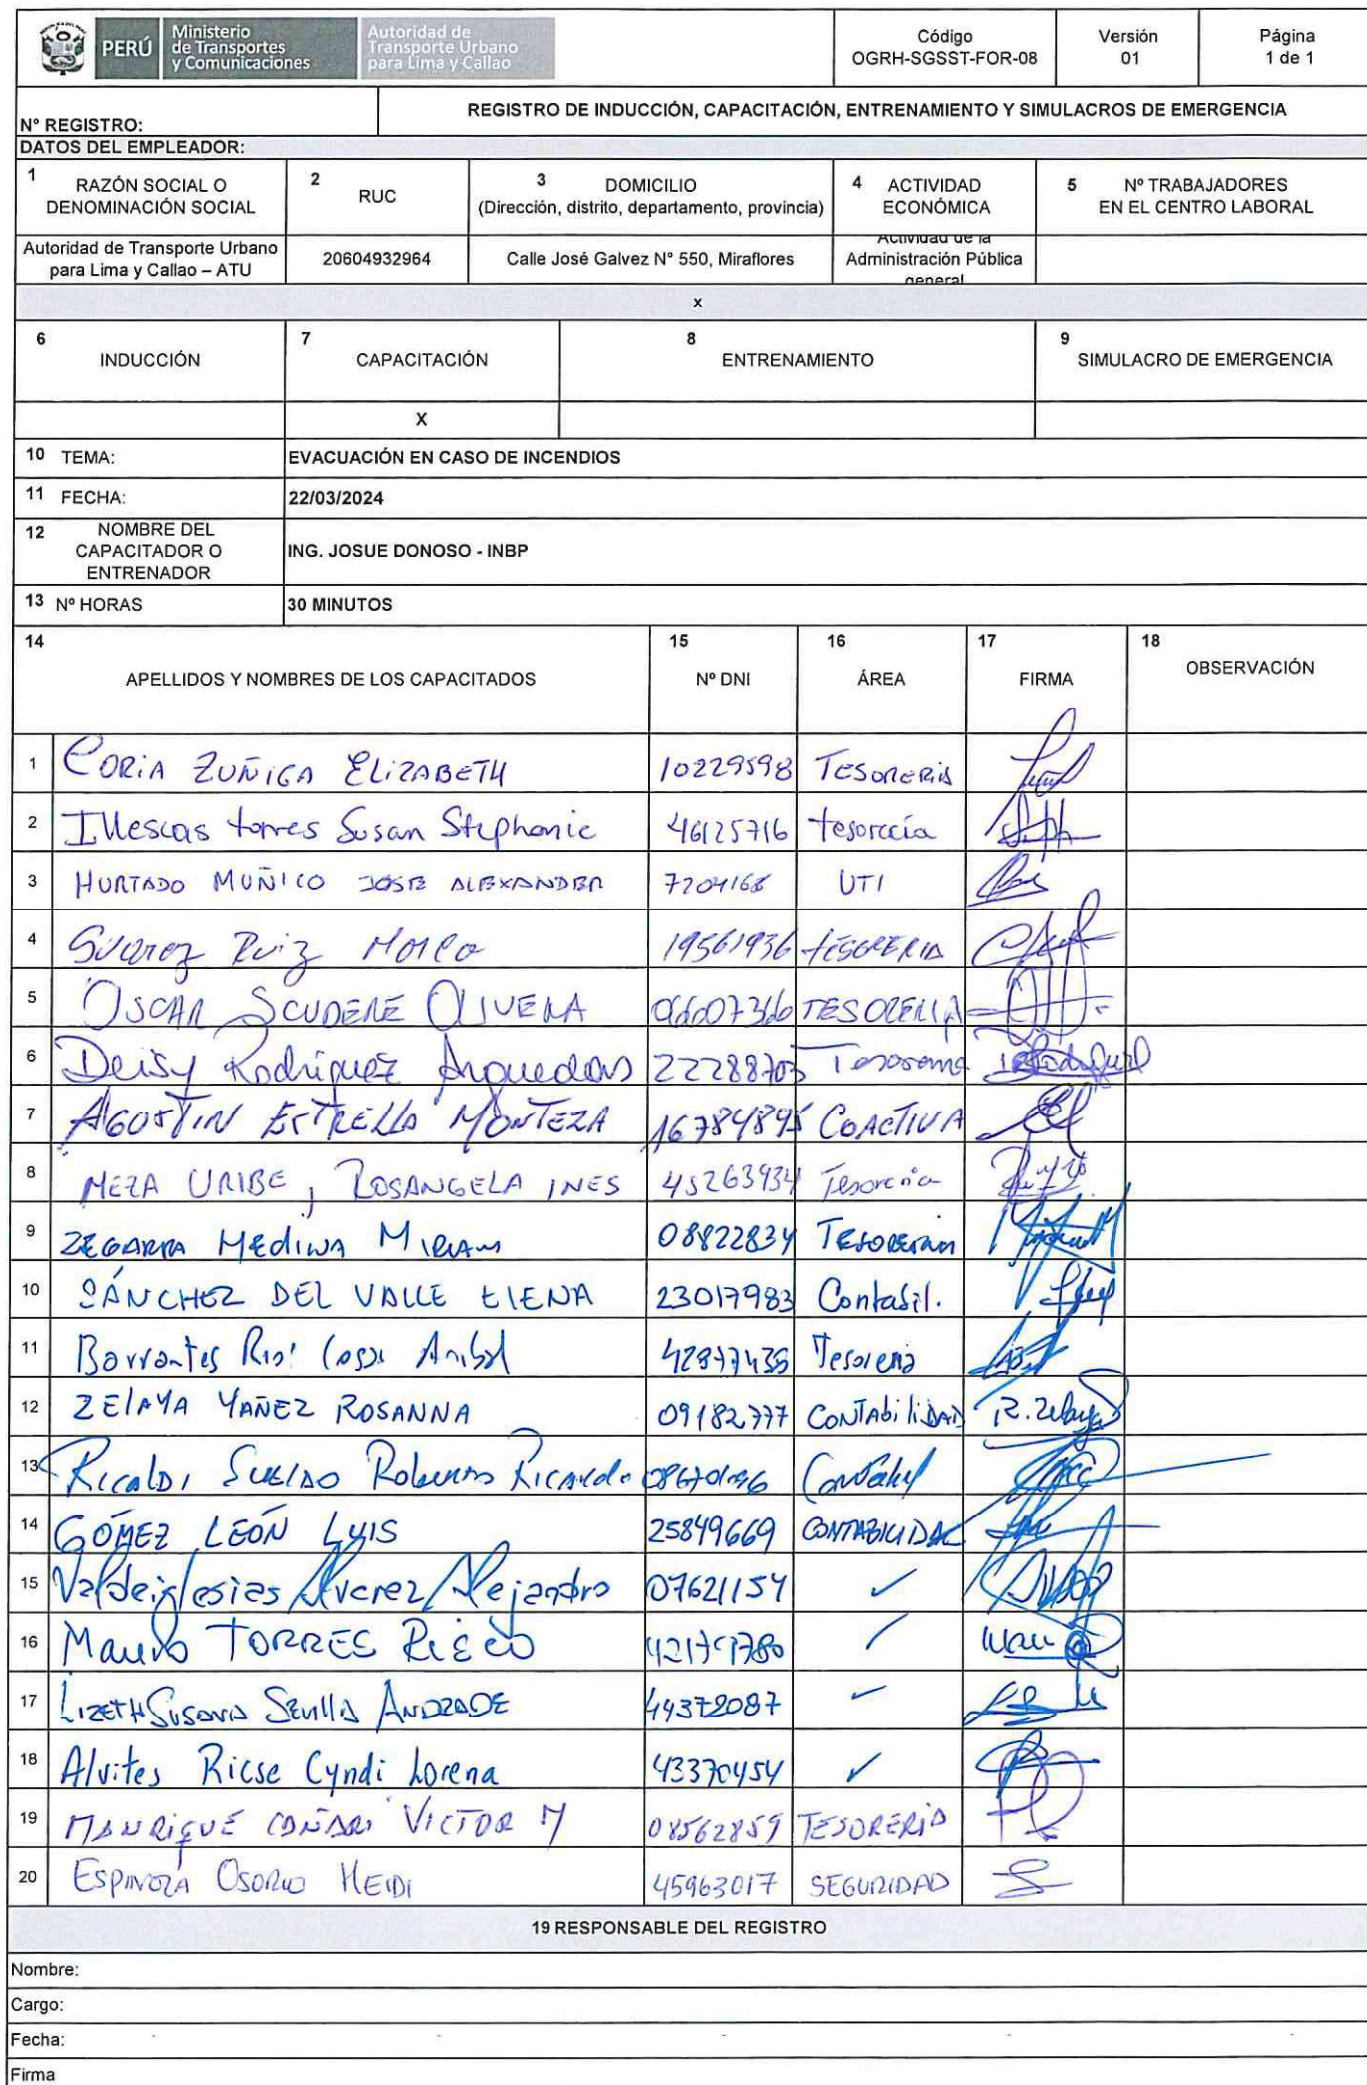 PERÚ
Ministerio
de Transportes
y Comunicaciones
Autoridad de
Transporte Urbano
para Lima y Callao
Código
OGRH-SGSST-FOR-08
Versión
01
Página
1 de 1
Nº REGISTRO:
REGISTRO DE INDUCCIÓN, CAPACITACIÓN, ENTRENAMIENTO Y SIMULACROS DE EMERGENCIA
DATOS DEL EMPLEADOR:
1 RAZÓN SOCIAL O
DENOMINACIÓN SOCIAL
2 RUC
3 DOMICILIO
(Dirección, distrito, departamento, provincia)
4 ACTIVIDAD
ECONÓMICA
5 Nº TRABAJADORES
EN EL CENTRO LABORAL
Autoridad de Transporte Urbano
para Lima y Callao – ATU
20604932964
Calle José Galvez N° 550, Miraflores
Actividad de la
Administración Pública
general
x
6 INDUCCIÓN
7 CAPACITACIÓN
8 ENTRENAMIENTO
9 SIMULACRO DE EMERGENCIA
X
10 TEMA: EVACUACIÓN EN CASO DE INCENDIOS
11 FECHA: 22/03/2024
12 NOMBRE DEL
CAPACITADOR O
ENTRENADOR
ING. JOSUE DONOSO - INBP
13 Nº HORAS 30 MINUTOS
14 APELLIDOS Y NOMBRES DE LOS CAPACITADOS
15 Nº DNI
16 ÁREA
17 FIRMA
18 OBSERVACIÓN
1 CORIA ZUÑIGA ELIZABETH 10229598 TESORERIA
2 Illescas torres Susan Stephanie 46125716 tesorería
3 HURTADO MUÑICO JOSE ALEXANDER 7204168 UTI
4 Suarez Ruiz Marco 19561936 TESORERIA
5 OSCAR SCUDERE OLIVERA TESORERIA
6 Deisy Rodriguez Arguedas 22288703 Tesoreria
7 AGUSTIN ESTRELLA MONTEZA COACTIVA
8 MEZA URIBE, ROSANGELA INES 45263934 Tesoreria
9 ZEGARRA MEDINA MIRIAM 08822834 TESORERIA
10 SÁNCHEZ DEL VALLE ELENA 23017983 Contabil.
11 Barrantes Anibal Tesoreria
12 ZELAYA YAÑEZ ROSANNA 09182777 CONTABILIDAD R. Zelaya
13 Ricaldi Roberto Ricardo
14 GÓMEZ LEÓN LUIS 25849669 CONTABILIDAD
15 Valdeiglesias Alvarez Alejandro 07621154 ✓
16 Mauro TORRES
17 LIZETH SUSANA SEVILLA ANDRADE 44372087
18 Alvites Ricse Cyndi Lorena 43370454 ✓
19 MANRIQUE CAÑARI VICTOR M 08562859 TESORERIA
20 ESPINOZA OSORIO HEIDI 45963017 SEGURIDAD
19 RESPONSABLE DEL REGISTRO
Nombre:
Cargo:
Fecha:
Firma